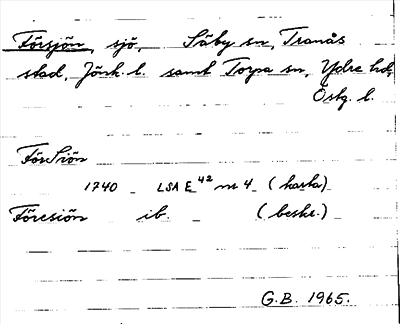 Försjön, sjö, Säby sn, Tranås
stad, Jönk. l. samt Torpa sn, Ydre hd,
Östg. l.
För Siön
1740 LSA E⁴² nr 4 (karta)
Föresiön ib. (beskr.)
G.B. 1965.